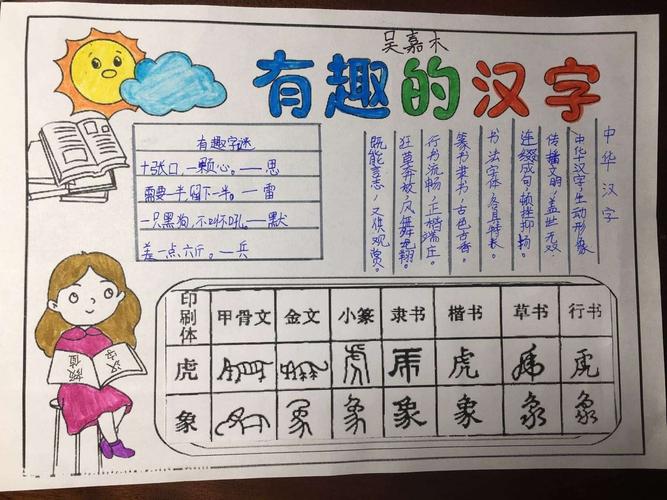 吴嘉木
有趣的汉字
有趣字谜
十张口,一颗心。——思
需要一半,留下一半。——雷
一只黑狗,不叫不吼。——默
差一点,六斤。——兵
中华汉字
中华汉字,生动形象
传播文明,盖世无双
连缀成句,顿挫抑扬。
书法字体,各具特长。
篆书隶书,古色古香。
行书流畅,正楷端庄。
狂草奔放,凤舞龙翔。
既能言志,又供观赏。
印刷体 甲骨文 金文 小篆 隶书 楷书 草书 行书
虎 虎 虎 虎 虎 虎 虎 虎
象 象 象 象 象 象 象 象